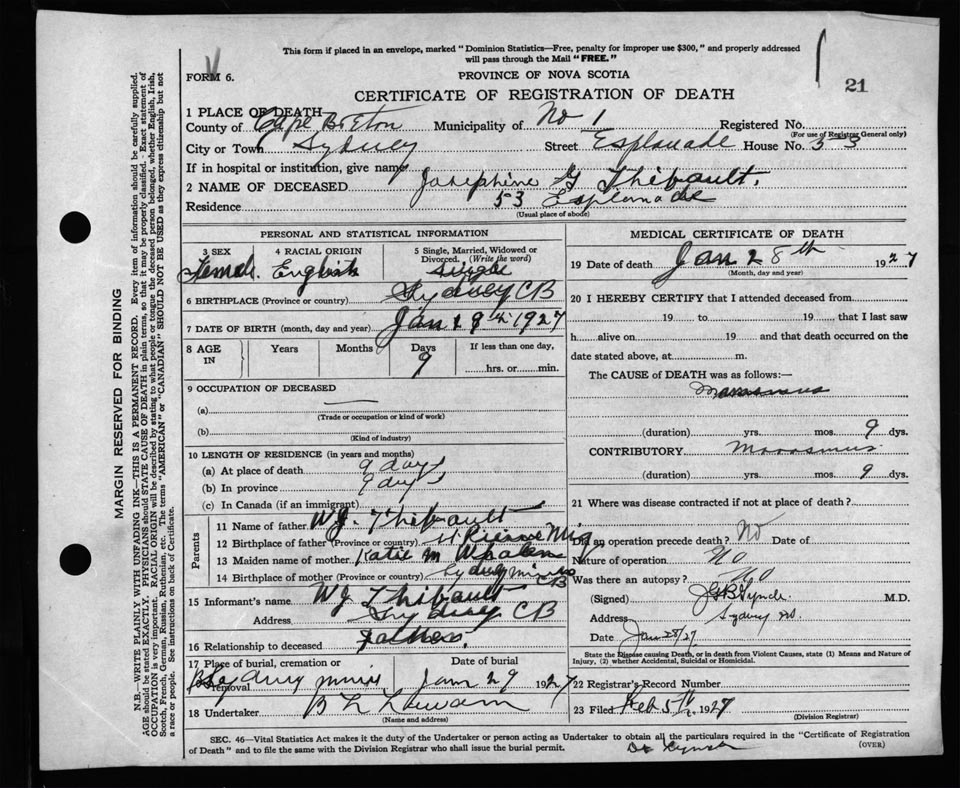 This form if placed in an envelope, marked "Dominion Statistics—Free, penalty for improper use $300," and properly addressed
will pass through the Mail "FREE."
FORM 6.
PROVINCE OF NOVA SCOTIA
21
CERTIFICATE OF REGISTRATION OF DEATH
1 PLACE OF DEATH
County of Cape Breton Municipality of No 1 Registered No.
(For use of Registrar General only)
City or Town Sydney Street Esplanade House No. 53
If in hospital or institution, give name
2 NAME OF DECEASED Josephine G Thibault.
Residence 53 Esplanade
(Usual place of abode)
PERSONAL AND STATISTICAL INFORMATION
3 SEX 4 RACIAL ORIGIN 5 Single, Married, Widowed or
Divorced. (Write the word)
Female. English Single
6 BIRTHPLACE (Province or country) Sydney CB
7 DATE OF BIRTH (month, day and year) Jan 19th 1927
8 AGE IN Years Months Days If less than one day,
9 hrs. or min.
9 OCCUPATION OF DECEASED
(a)
(Trade or occupation or kind of work)
(b)
(Kind of industry)
10 LENGTH OF RESIDENCE (in years and months)
(a) At place of death 9 days
(b) In province 9 days
(c) In Canada (if an immigrant)
Parents
11 Name of father WJ. Thibault
12 Birthplace of father (Province or country) St Pierre Miq
13 Maiden name of mother Katie M Whalen
14 Birthplace of mother (Province or country) Sydney mines
CB
15 Informant's name WJ Thibault
Address Sydney CB
16 Relationship to deceased Father.
17 Place of burial, cremation or Date of burial
removal Sydney mines Jan 29 1927
18 Undertaker
(Name and address)
MEDICAL CERTIFICATE OF DEATH
19 Date of death Jan 28th 1927
(Month, day and year)
20 I HEREBY CERTIFY that I attended deceased from
19 to 19 that I last saw
h alive on 19 and that death occurred on the
date stated above, at m.
The CAUSE of DEATH was as follows:—
(duration) yrs. mos. 9 dys.
CONTRIBUTORY Marasmus
(duration) yrs. mos. 9 dys.
21 Where was disease contracted if not at place of death?
Did an operation precede death? No Date of
Nature of operation No
Was there an autopsy? No
(Signed) Lynch M.D.
Address Sydney
Date Jan 28/27
State the Disease causing Death, or in death from Violent Causes, state (1) Means and Nature of
Injury, (2) whether Accidental, Suicidal or Homicidal.
22 Registrar's Record Number
23 Filed Feb 5th 1927
(Division Registrar)
SEC. 46—Vital Statistics Act makes it the duty of the Undertaker or person acting as Undertaker to obtain all the particulars required in the "Certificate of Registration
of Death" and to file the same with the Division Registrar who shall issue the burial permit.
(OVER)
MARGIN RESERVED FOR BINDING
N.B.—WRITE PLAINLY WITH UNFADING INK—THIS IS A PERMANENT RECORD. Every item of information should be carefully supplied.
AGE should be stated EXACTLY. PHYSICIANS should STATE CAUSE OF DEATH in plain terms, so that it may be properly classified. Exact statement of
OCCUPATION is very important. RACIAL ORIGIN will be described by stating to what people or tongue the deceased person belonged, whether English, Irish,
Scotch, French, German, Russian, Ruthenian, etc. The terms "AMERICAN" or "CANADIAN" SHOULD NOT BE USED as they express citizenship but not
a race or people. See instructions on back of Certificate.